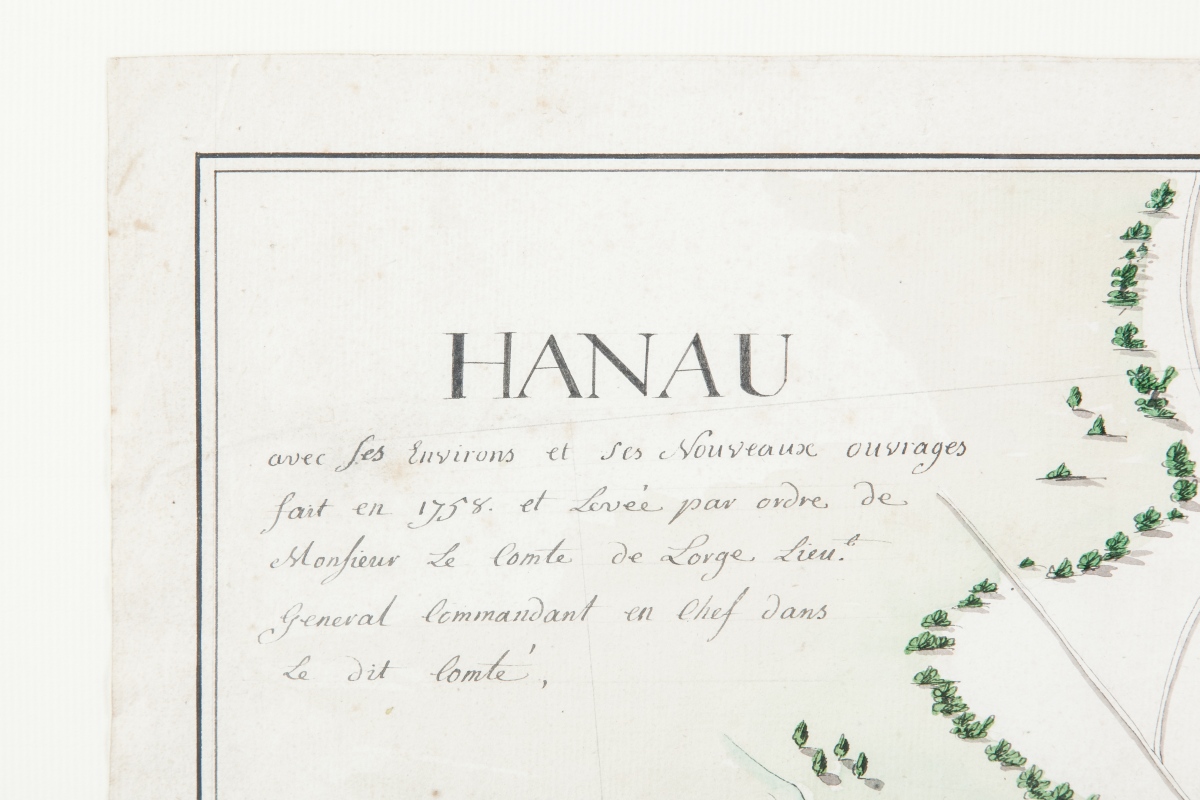 HANAU
avec ſes Environs et ses Nouveaux ouvrages
fait en 1758. et Levée par ordre de
Monſieur Le Comte de Lorge Lieu.t
General Commandant en Chef dans
Le dit Comté,